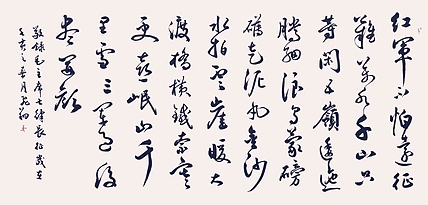 红军不怕远征
难万水千山只
等闲五岭逶迤
腾细浪乌蒙磅
礴走泥丸金沙
水拍云崖暖大
渡桥横铁索寒
更喜岷山千
里雪三军过后
尽开颜
敬录毛主席七律长征岁在